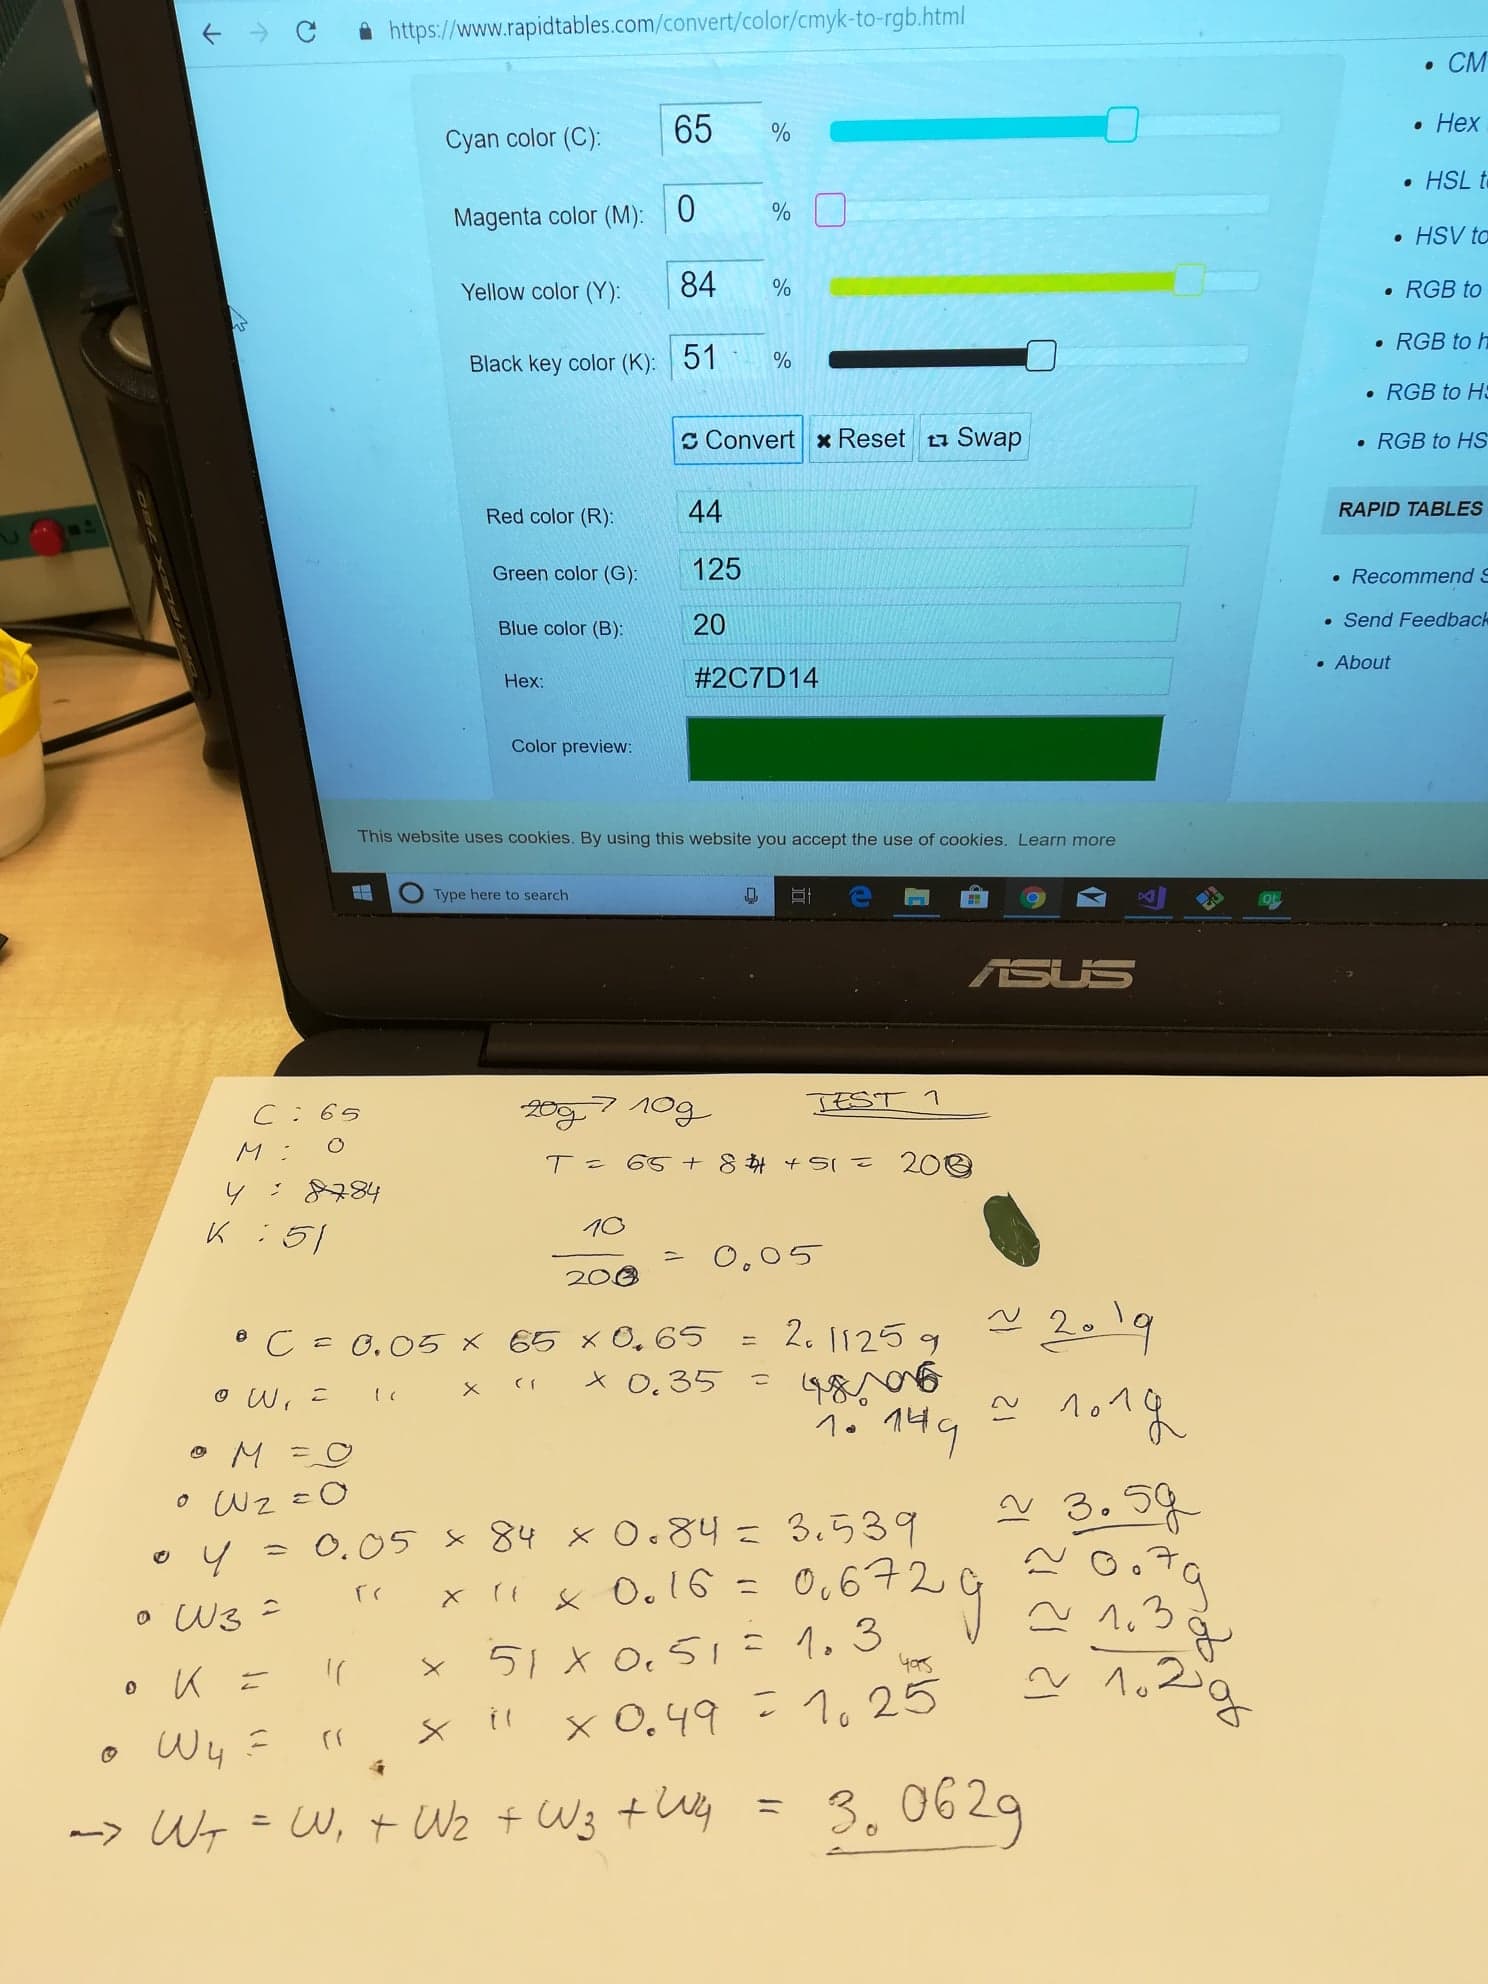 https://www.rapidtables.com/convert/color/cmyk-to-rgb.html
Cyan color (C): 65 %
Magenta color (M): 0 %
Yellow color (Y): 84 %
Black key color (K): 51 %
Convert Reset Swap
Red color (R): 44
Green color (G): 125
Blue color (B): 20
Hex: #2C7D14
Color preview:
• CM
• Hex
• HSL t
• HSV to
• RGB to
• RGB to h
• RGB to HS
• RGB to HS
RAPID TABLES
• Recommend S
• Send Feedback
• About
This website uses cookies. By using this website you accept the use of cookies. Learn more
Type here to search
ASUS
TEST 1
C : 65
M : 0
Y : 84
K : 51
20g → 10g
T = 65 + 84 + 51 = 200
10
200 = 0.05
• C = 0.05 x 65 x 0.65 = 2.1125g ≃ 2.1g
• W1 = " x " x 0.35 = 1.14g ≃ 1.1g
• M = 0
• W2 = 0
• Y = 0.05 x 84 x 0.84 = 3.539 ≃ 3.5g
• W3 = " x " x 0.16 = 0.672g ≃ 0.7g
• K = " x 51 x 0.51 = 1.3 ≃ 1.3g
• W4 = " x " x 0.49 = 1.25 ≃ 1.2g
→ WT = W1 + W2 + W3 + W4 = 3.062g